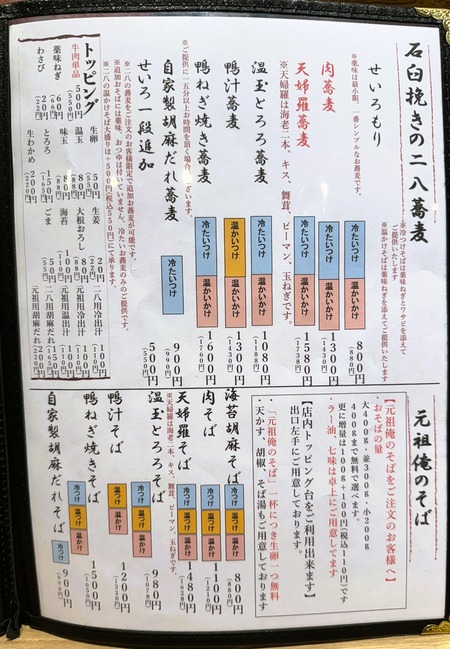 石臼挽きの二八蕎麦
※冷つけそばは薬味ねぎとワサビを添えて
ご提供いたします
※温かけそばは薬味ねぎを添えてご提供いたします
せいろもり
※薬味は最小限、一番シンプルなお蕎麦です。
冷たいつけ
温かいかけ
800円
(880円)
肉蕎麦
冷たいつけ
温かいかけ
1300円
(1430円)
天婦羅蕎麦
※天婦羅は海老二本、キス、舞茸、ピーマン、玉ねぎです。
冷たいつけ
温かいかけ
1580円
(1738円)
温玉とろろ蕎麦
冷たいつけ
温かいかけ
1080円
(1188円)
鴨汁蕎麦
温かいつけ
温かいかけ
1300円
(1430円)
鴨ねぎ焼き蕎麦
※ご提供に一五分以上お時間を頂く場合がございます。
冷たいつけ
温かいかけ
1600円
(1760円)
自家製胡麻だれ蕎麦
冷たいつけ
900円
(990円)
せいろ一段追加
500円
(550円)
※二八の蕎麦をご注文のお客様限定で追加お蕎麦が可能です。
※追加おそばには薬味、おつゆは付いていません。冷たいお蕎麦のみのご提供です。
※二八の温かけそば大盛りは+500円(税込550円)にて承ります。
トッピング
牛肉単品
500円
(550円)
生卵
50円
(55円)
生姜
20円
(22円)
薬味ねぎ
60円
温玉
80円
(88円)
大根おろし
80円
(88円)
二八用冷出汁
100円
わさび
20円
(22円)
味玉
80円
(88円)
海苔
100円
元祖用温出汁
とろろ
150円
ごま
50円
元祖用冷出汁
生わかめ
200円
(220円)
二八用胡麻だれ
元祖用胡麻だれ
元祖俺のそば
【元祖俺のそばをご注文のお客様へ】
おそばの量
大400g・並300g・小200g
400gまで無料で選べます。
更に増量は100g+100円(税込110円)です
ラー油、七味は卓上にご用意しています
【店内・トッピング台をご利用出来ます】
出口左手にご用意しております。
・「元祖俺のそば」一杯につき生卵一つ無料
・天かす、胡椒、そば湯もご用意しております
海苔胡麻そば
冷つけ
温つけ
温かけ
800円
(880円)
肉そば
冷つけ
温つけ
温かけ
1100円
(1210円)
天婦羅そば
※天婦羅は海老二本、キス、舞茸、ピーマン、玉ねぎです。
冷つけ
温つけ
温かけ
1480円
(1628円)
温玉とろろそば
冷つけ
温つけ
温かけ
980円
(1078円)
鴨汁そば
温つけ
温かけ
1200円
(1320円)
鴨ねぎ焼きそば
冷つけ
温つけ
温かけ
1500円
(1650円)
自家製胡麻だれそば
冷つけ
900円
(990円)